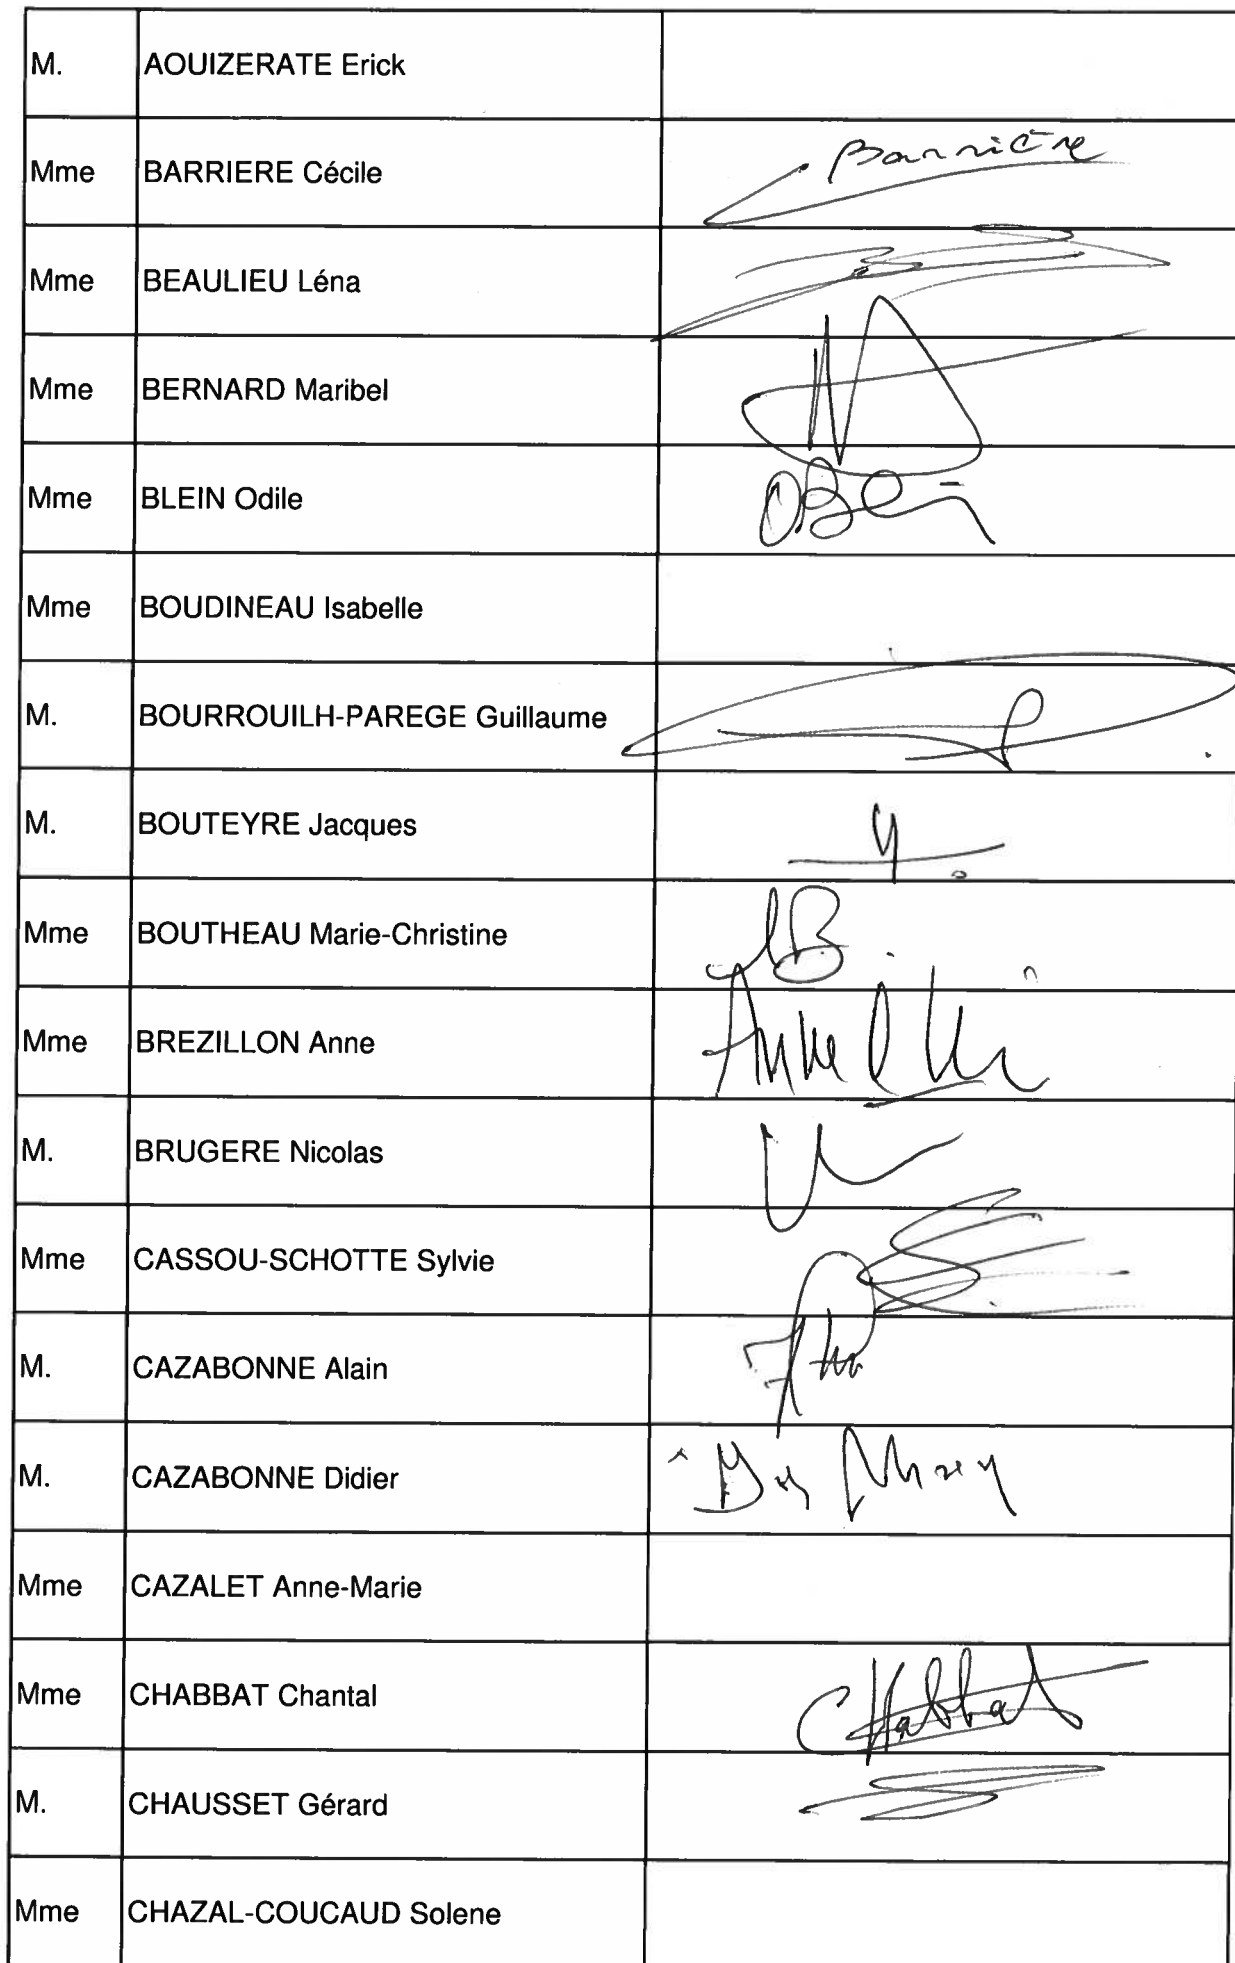 M. AOUIZERATE Erick
Mme BARRIERE Cécile Barrière
Mme BEAULIEU Léna
Mme BERNARD Maribel
Mme BLEIN Odile
Mme BOUDINEAU Isabelle
M. BOURROUILH-PAREGE Guillaume
M. BOUTEYRE Jacques
Mme BOUTHEAU Marie-Christine
Mme BREZILLON Anne
M. BRUGERE Nicolas
Mme CASSOU-SCHOTTE Sylvie
M. CAZABONNE Alain
M. CAZABONNE Didier
Mme CAZALET Anne-Marie
Mme CHABBAT Chantal CHabbat
M. CHAUSSET Gérard
Mme CHAZAL-COUCAUD Solene